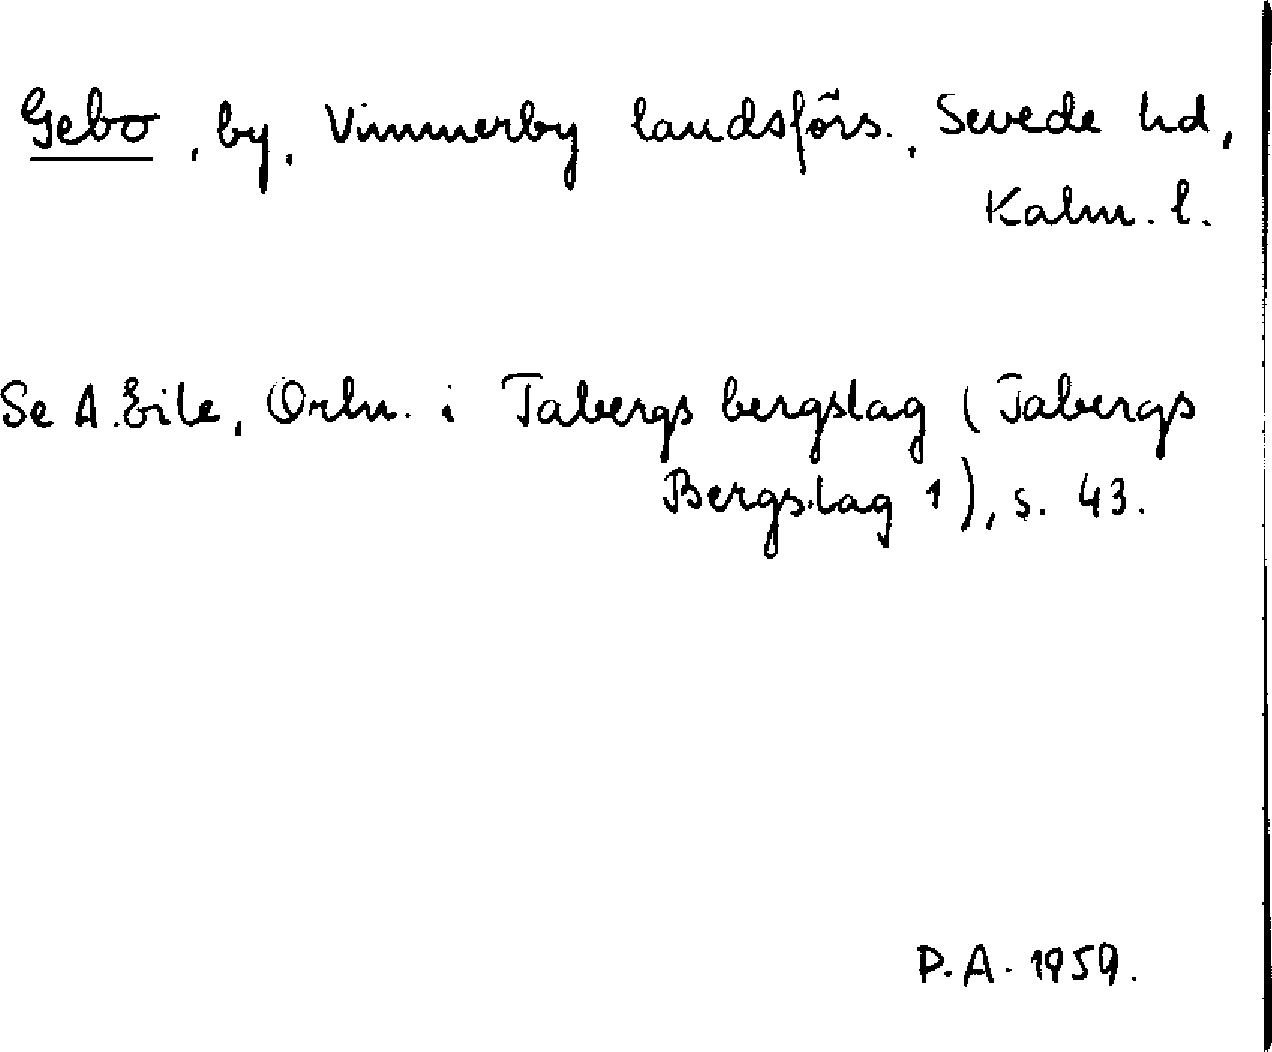 Gebo, by, Vimmerby landsförs., Sevede hd,
Kalm. l.
Se A. Eile, Ortn. i Tabergs bergslag (Tabergs
Bergslag 1), s. 43.
P.A. 1959.